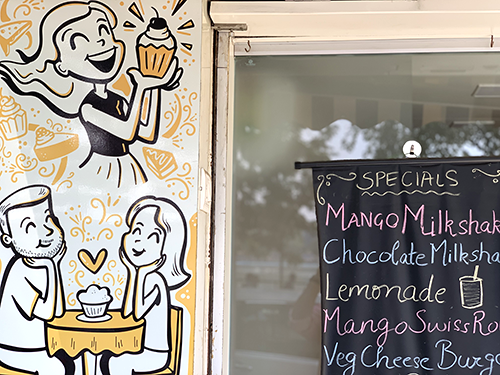 SPECIALS
MANGO Milkshak
Chocolate Milksha
Lemonade
Mango Swiss Ro
Veg Cheese Burg